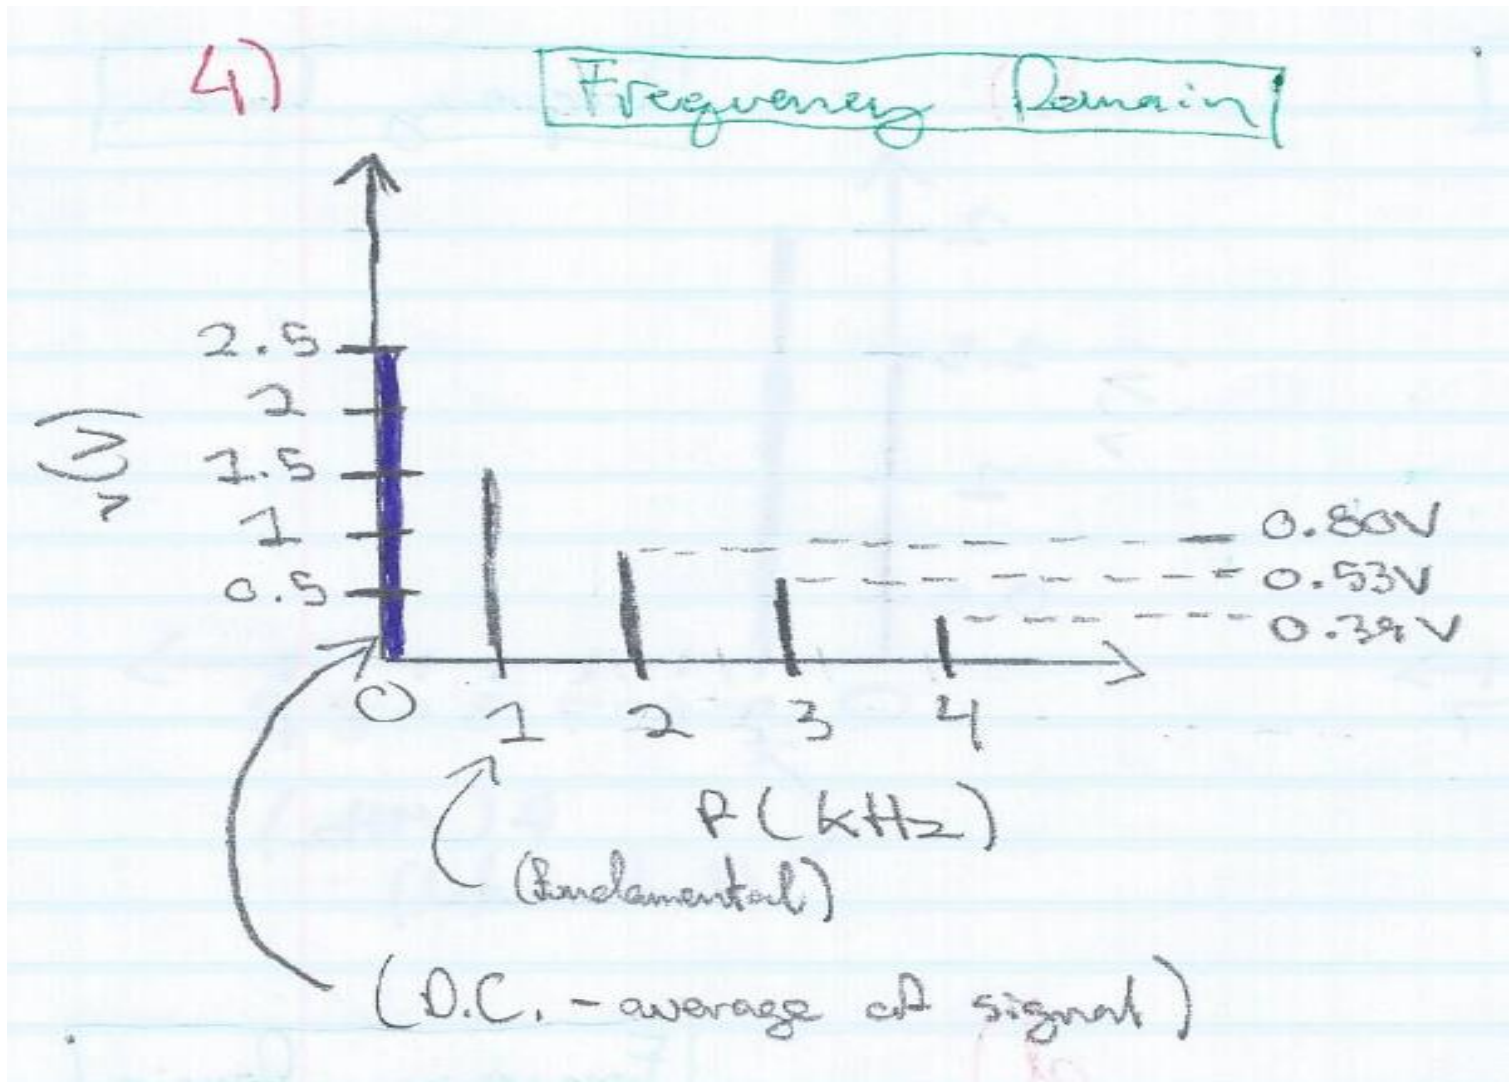 4) Frequency Domain
2.5
2
V (V)
1.5
1
0.80V
0.5
0.53V
0.39V
0 1 2 3 4
f (kHz)
(fundamental)
(D.C. - average of signal)